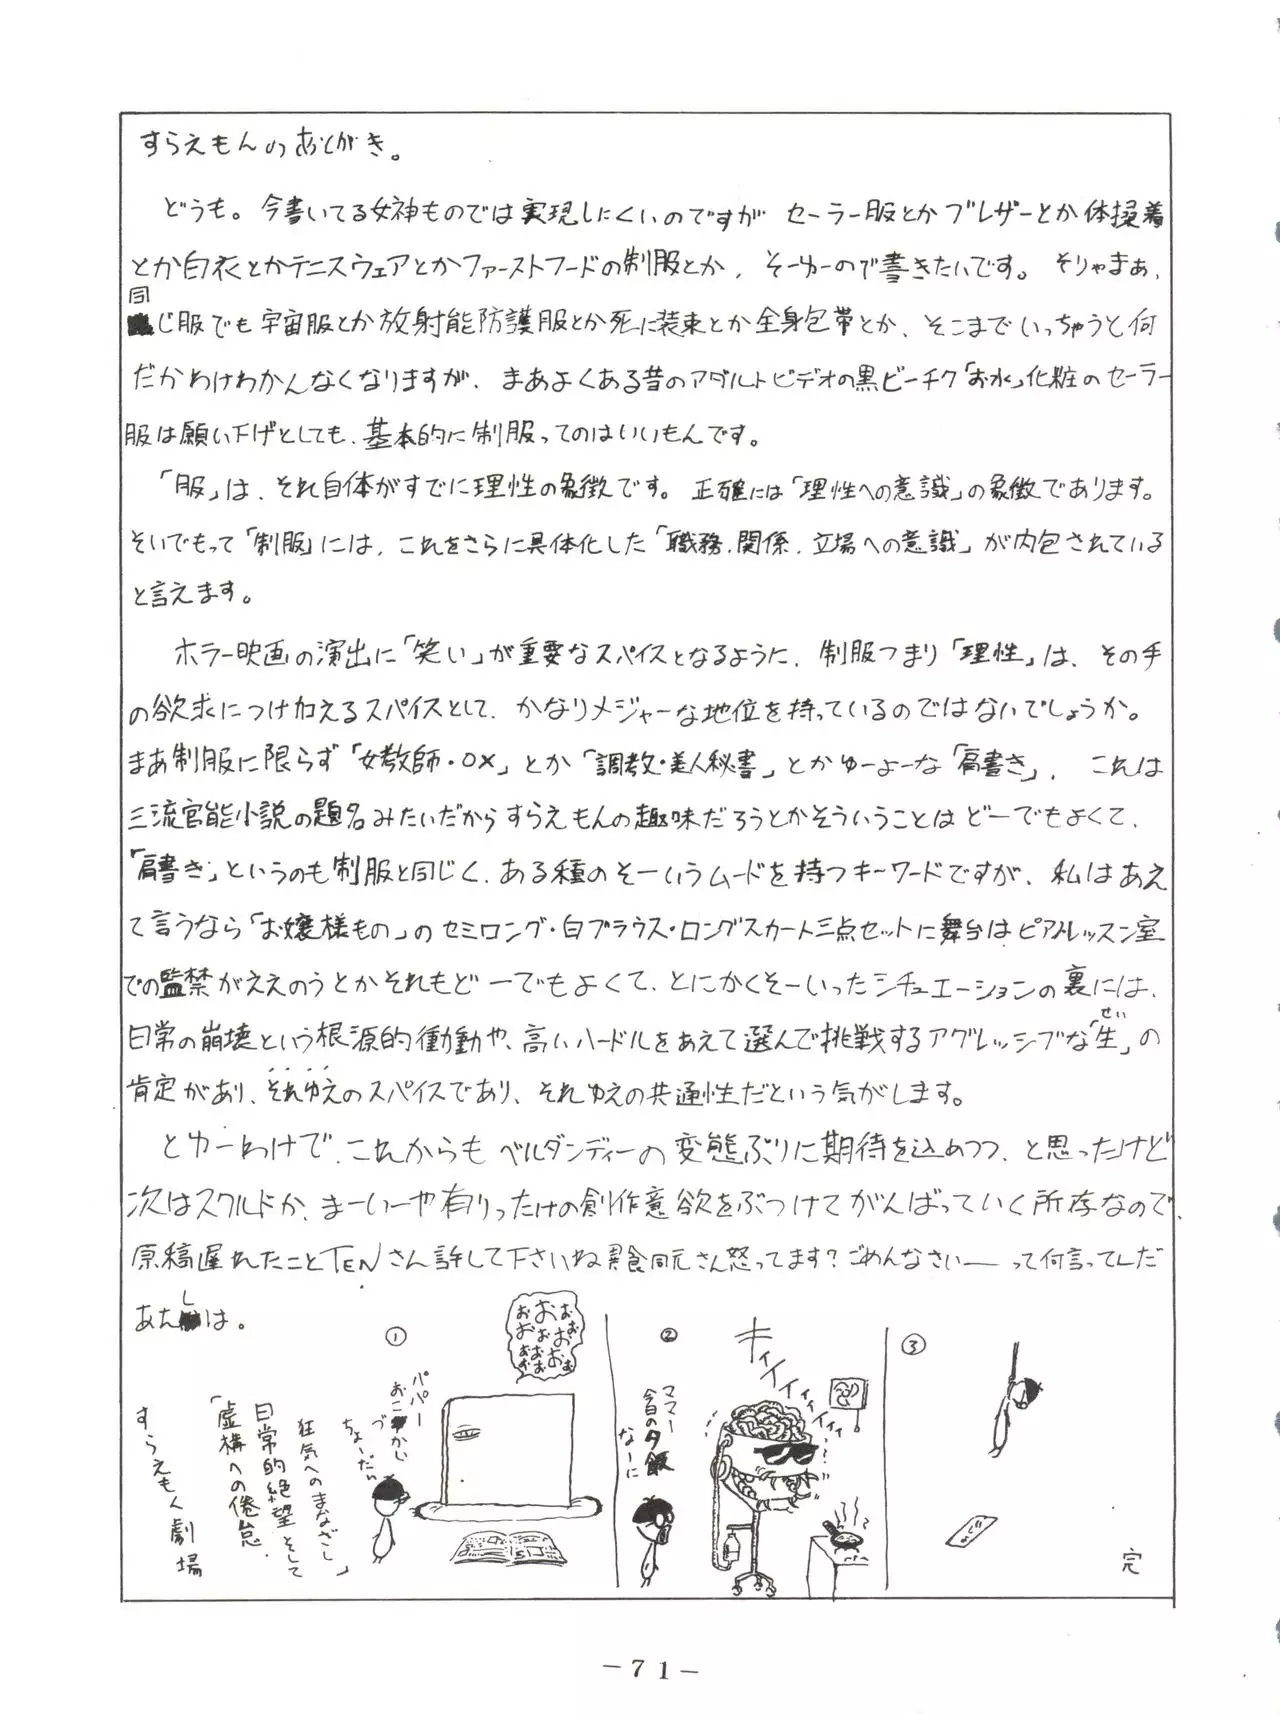 すらえもんのあしがき。
どうも。今書いてる女神ものでは実現しにくいのですが セーラー服とかブレザーとか体操着
とか白衣とかテニスウェアとかファーストフードの制服とか、そーゆーので書きたいです。そりゃまぁ、
同じ服でも宇宙服とか放射能防護服とか死に装束とか全身包帯とか、そこまでいっちゃうと何
だかわけわかんなくなりますが、まあよくある昔のアダルトビデオの黒ビーチク「お水」化粧のセーラー
服は願い下げとしても、基本的に制服ってのはいいもんです。
「服」は、それ自体がすでに理性の象徴です。正確には「理性への意識」の象徴であります。
そいでもって「制服」には、これをさらに具体化した「職務、関係、立場への意識」が内包されている
と言えます。
ホラー映画の演出に「笑い」が重要なスパイスとなるように、制服つまり「理性」は、その手
の欲求につけ加えるスパイスとして、かなりメジャーな地位を持っているのではないでしょうか。
まあ制服に限らず「女教師・○×」とか「調教・美人秘書」とかゆーよーな「肩書き」、これは
三流官能小説の題名みたいだからすらえもんの趣味だろうとかそういうことはどーでもよくて、
「肩書き」というのも制服と同じく、ある種のそーいうムードを持つキーワードですが、私はあえ
て言うなら「お嬢様もの」のセミロング・白ブラウス・ロングスカート三点セットに舞台はピアノレッスン室
での監禁がええのうとかそれもどーでもよくて、とにかくそーいったシチュエーションの裏には、
日常の崩壊という根源的衝動や、高いハードルをあえて選んで挑戦するアグレッシブな「生」の
せい
肯定があり、それゆえのスパイスであり、それゆえの共通性だという気がします。
とゆーわけで、これからもベルダンディーの変態ぶりに期待を込めつつ、と思ったけど
次はスクルドか、まーいーや有りったけの創作意欲をぶつけてがんばっていく所存なので、
原稿遅れたことTENさん許して下さいね 異食同元さん怒ってます？ごめんなさい―って何言ってんだ
あたしは。
すらえもく劇場
「虚構への倦怠、
日常的絶望そして
狂気へのまなざし」
①
パパー
おこづかい
ちょーだい
おおおおおおおおおおおお
②
ママー
今日の夕飯
なーに
キィィィィィィィィ
③
完
－71－